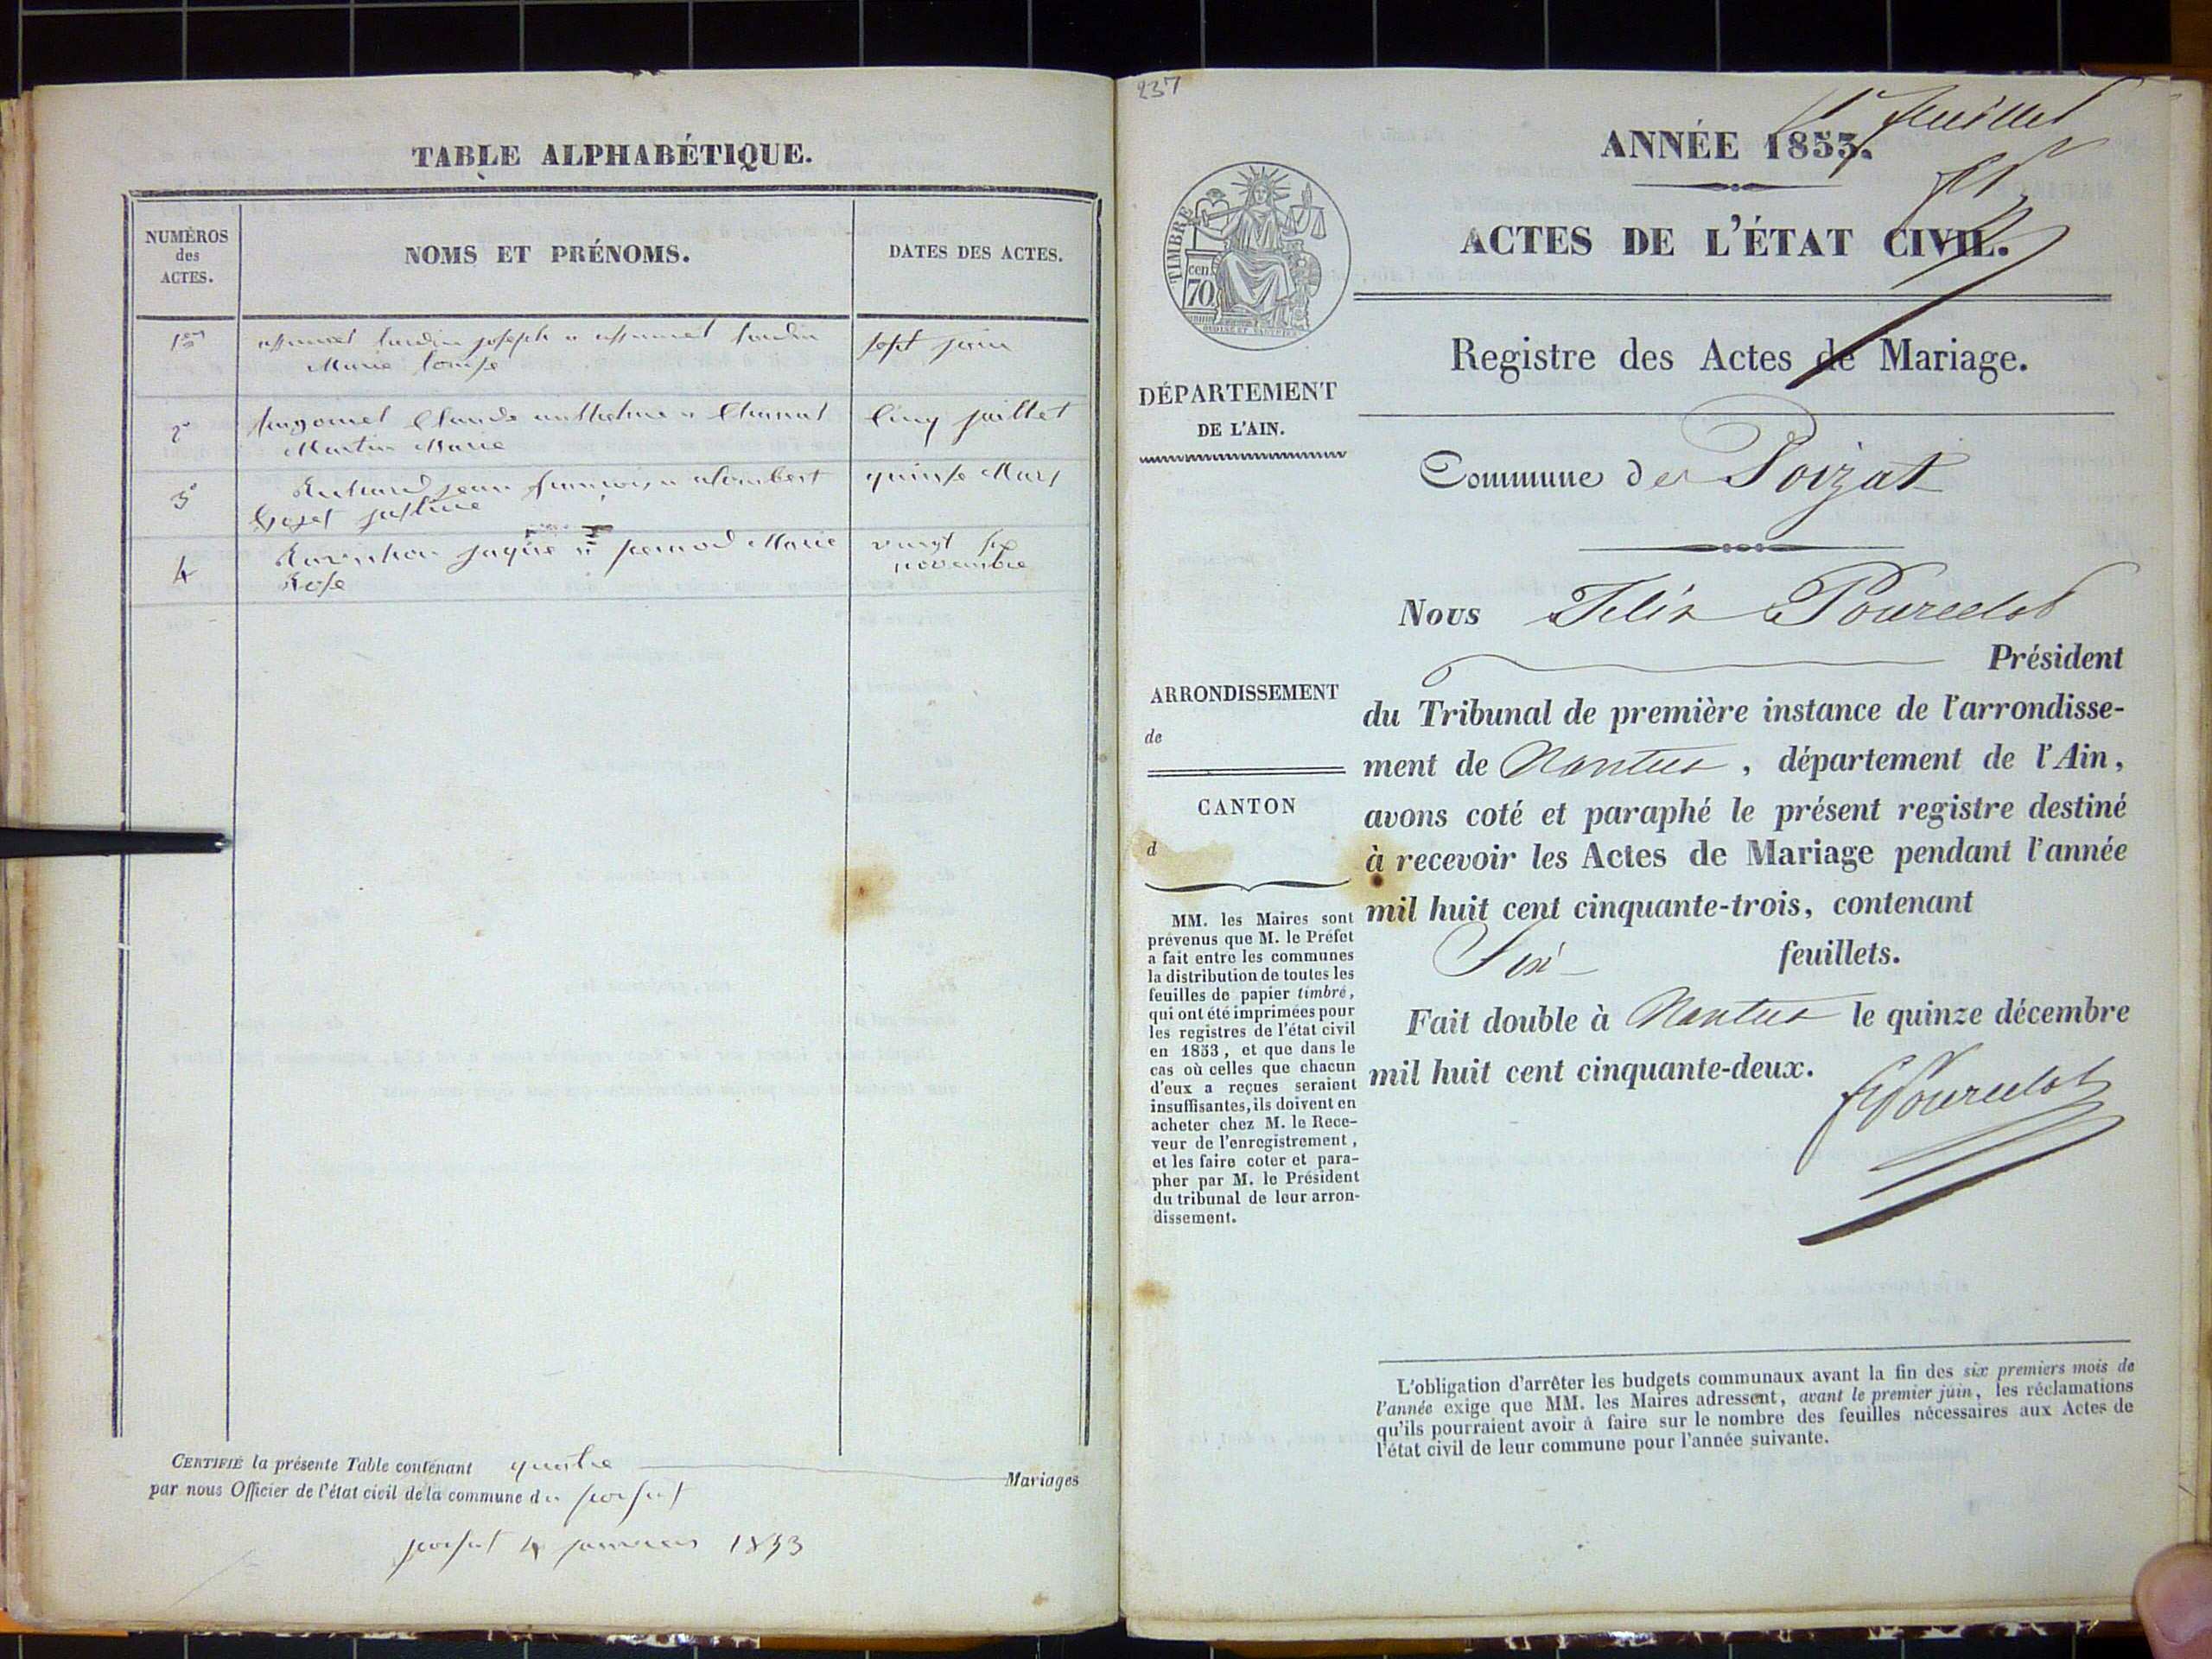 TABLE ALPHABÉTIQUE.
NUMÉROS
des
ACTES.
NOMS ET PRÉNOMS.
DATES DES ACTES.
1er
joseph
sept juin
Marie
2e
Claude
Cinq juillet
Martin Marie
3e
jean françois
quinze Mars
justine
4
jaque
Marie
vingt six
Rose
novembre
CERTIFIÉ la présente Table contenant quatre Mariages
par nous Officier de l'état civil de la commune du poisat
poisat 4 janvier 1853
237
1er feuillet
ANNÉE 1853.
TIMBRE
cen
70
ACTES DE L'ÉTAT CIVIL.
Registre des Actes de Mariage.
DÉPARTEMENT
DE L'AIN.
Commune de Poizat
Nous Félix Pourcelot
Président
ARRONDISSEMENT
de
CANTON
d
du Tribunal de première instance de l'arrondisse-
ment de Nantua, département de l'Ain,
avons coté et paraphé le présent registre destiné
à recevoir les Actes de Mariage pendant l'année
mil huit cent cinquante-trois, contenant
Six feuillets.
Fait double à Nantua le quinze décembre
mil huit cent cinquante-deux.
FPourcelot
MM. les Maires sont
prévenus que M. le Préfet
a fait entre les communes
la distribution de toutes les
feuilles de papier timbré,
qui ont été imprimées pour
les registres de l'état civil
en 1853, et que dans le
cas où celles que chacun
d'eux a reçues seraient
insuffisantes, ils doivent en
acheter chez M. le Rece-
veur de l'enregistrement,
et les faire coter et para-
pher par M. le Président
du tribunal de leur arron-
dissement.
L'obligation d'arrêter les budgets communaux avant la fin des six premiers mois de
l'année exige que MM. les Maires adressent, avant le premier juin, les réclamations
qu'ils pourraient avoir à faire sur le nombre des feuilles nécessaires aux Actes de
l'état civil de leur commune pour l'année suivante.